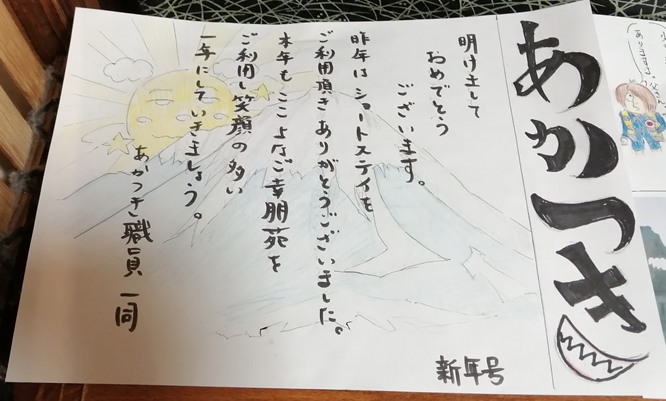 あかつき
新年号
明けまして
おめでとう
ございます。
昨年はショートステイを
ご利用頂きありがとうございました。
本年も、ここよなご幸朋苑を
ご利用し笑顔の多い
一年にしていきましょう。
あかつき職員一同